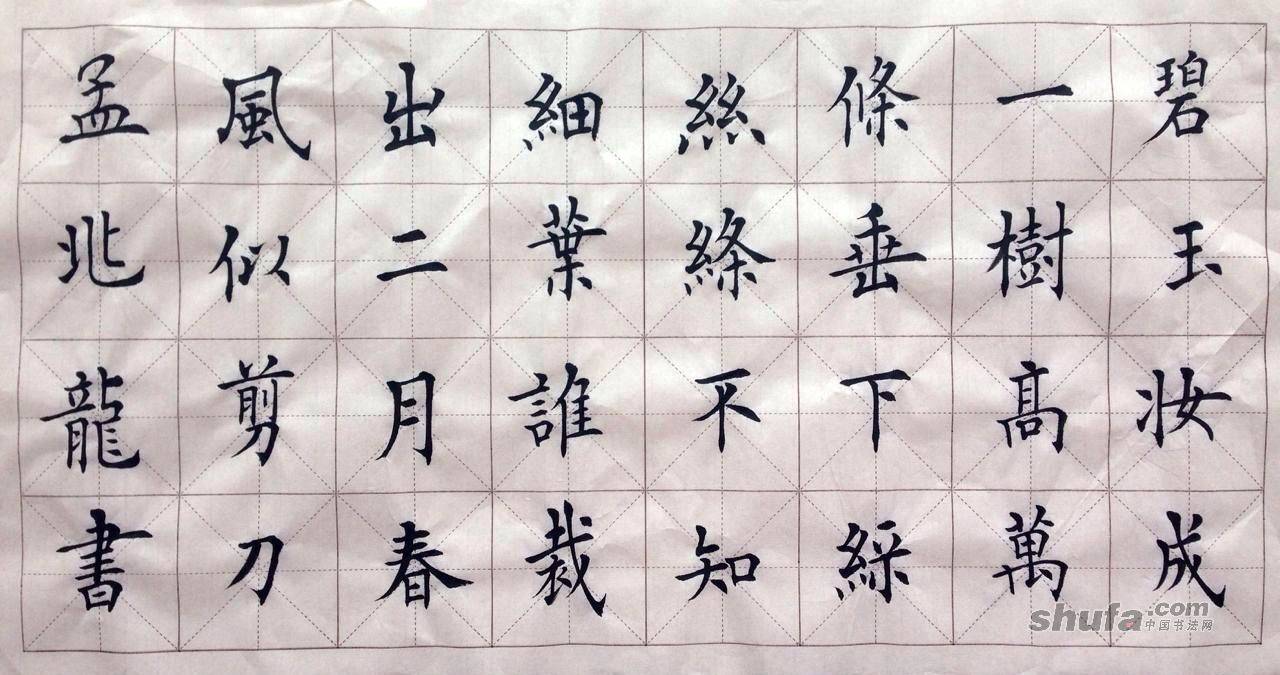 碧玉妆成
一樹高萬
條垂下綵
絲絛不知
細葉誰裁
出二月春
風似剪刀
孟兆龍書
shufa.com
中国书法网